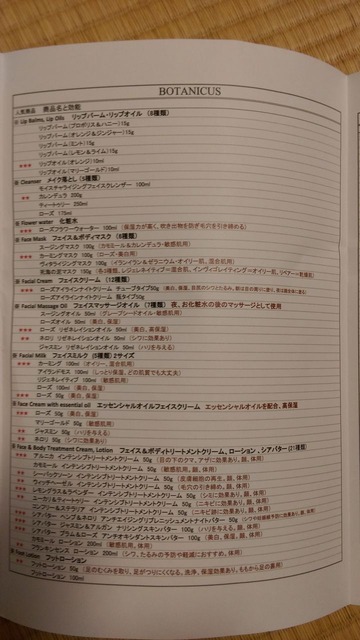 BOTANICUS
人気商品 商品名と効能
※ Lip Balms, Lip Oils リップバーム・リップオイル (6種類)
リップバーム(プロポリス&ハニー)15g
リップバーム(オレンジ&ジンジャー)15g
リップバーム(ミント)15g
リップバーム(レモン&ライム)15g
*** リップオイル(オレンジ)10ml
リップオイル(マリーゴールド)15ml
※ Cleanser メイク落とし(5種類)
モイスチャライジングフェイスクレンザー 100ml
** カレンデュラ 200g
ティートゥリー 250ml
ローズ 175ml
※ Flower water 化粧水
*** ローズフラワーウォーター 100ml (保湿力が高く、吹き出物を防ぎ毛穴を引き締める)
※ Face Mask フェイス&ボディマスク (6種類)
スージングマスク 100g (カモミール&カレンデュラ・敏感肌用)
*** カーミングマスク 100g (ローズ・美白用)
ヴィタライジングマスク 100g (イランイラン&ゼラニウム・オイリー肌、混合肌用)
死海の泥マスク 150g
※ Facial Cream フェイスクリーム (12種類)
*** ローズアイラインナイトクリーム チューブタイプ50g
ローズアイラインナイトクリーム 瓶タイプ50g
※ Facial Massage Oil フェイスマッサージオイル (7種類) 夜、お化粧水の後のマッサージとして使用
スージングオイル 50ml (グレープシードオイル・敏感肌用)
ローズオイル 50ml (美白、保湿)
*** ローズ リゼネレイションオイル 50ml (美白、高保湿)
** ネロリ リゼネレイションオイル 50ml (シワに効果あり)
ジャスミン リゼネレイションオイル 50ml (ハリを与える)
※ Facial Milk フェイスミルク (5種類) 2サイズ
*** カーミング 100ml (オイリー、混合肌用)
アイランドモス 100ml (しっとり保湿、どの肌質でも大丈夫)
リジェネレイティブ 100ml (敏感肌用)
ローズ 100ml (美白、保湿)
*** ローズ 50g (美白、保湿)
※ Face Cream with essential oil エッセンシャルオイルフェイスクリーム エッセンシャルオイルを配合、高保湿
*** ローズ 50g (美白、保湿)
マリーゴールド 50g (敏感肌用)
** ジャスミン 50g (ハリを与える)
** ネロリ 50g (シワに効果あり)
※ Face & Body Treatment Cream, Lotion フェイス&ボディトリートメントクリーム、ローション、シアバター (21種類)
*** アルニカ インテンシブトリートメントクリーム 50g (目の下のクマ、アザに効果あり、顔、体用)
カモミール インテンシブトリートメントクリーム 50g (敏感肌用、顔、体用)
シーバックソーン インテンシブトリートメントクリーム 50g (皮膚細胞の再生、顔、体用)
ウィッチヘーゼル インテンシブトリートメントクリーム 50g (毛穴の引き締め、顔、体用)
レモングラス&ラベンダー インテンシブトリートメントクリーム 50g (シミに効果あり、顔、体用)
ユーカリ&ティートゥリー インテンシブトリートメントクリーム 50g (ニキビに効果あり、顔、体用)
コンフリー&ステラリア インテンシブトリートメントクリーム 50g
シアバター ヘンプ&ネロリ アンチエイジングリプレニッシュメントナイトバター 50g
*** シアバター ジャスミン&アルガン ナリシングスキンバター 100g (ハリを与える、顔、体用)
シアバター プラム&ローズ アンチオキシダントスキンバター 100g (美白、保湿、顔、体用)
カモミール ローション 200ml (敏感肌用、体用)
フランキンセンス ローション 200ml (シワ、たるみの予防や軽減におすすめ、体用)
※ Foot Lotion フットローション
フットローション 50g (足のむくみを取り、足がつりにくくなる。洗浄、保湿効果あり。ももから足の裏用)
フットローション 100ml